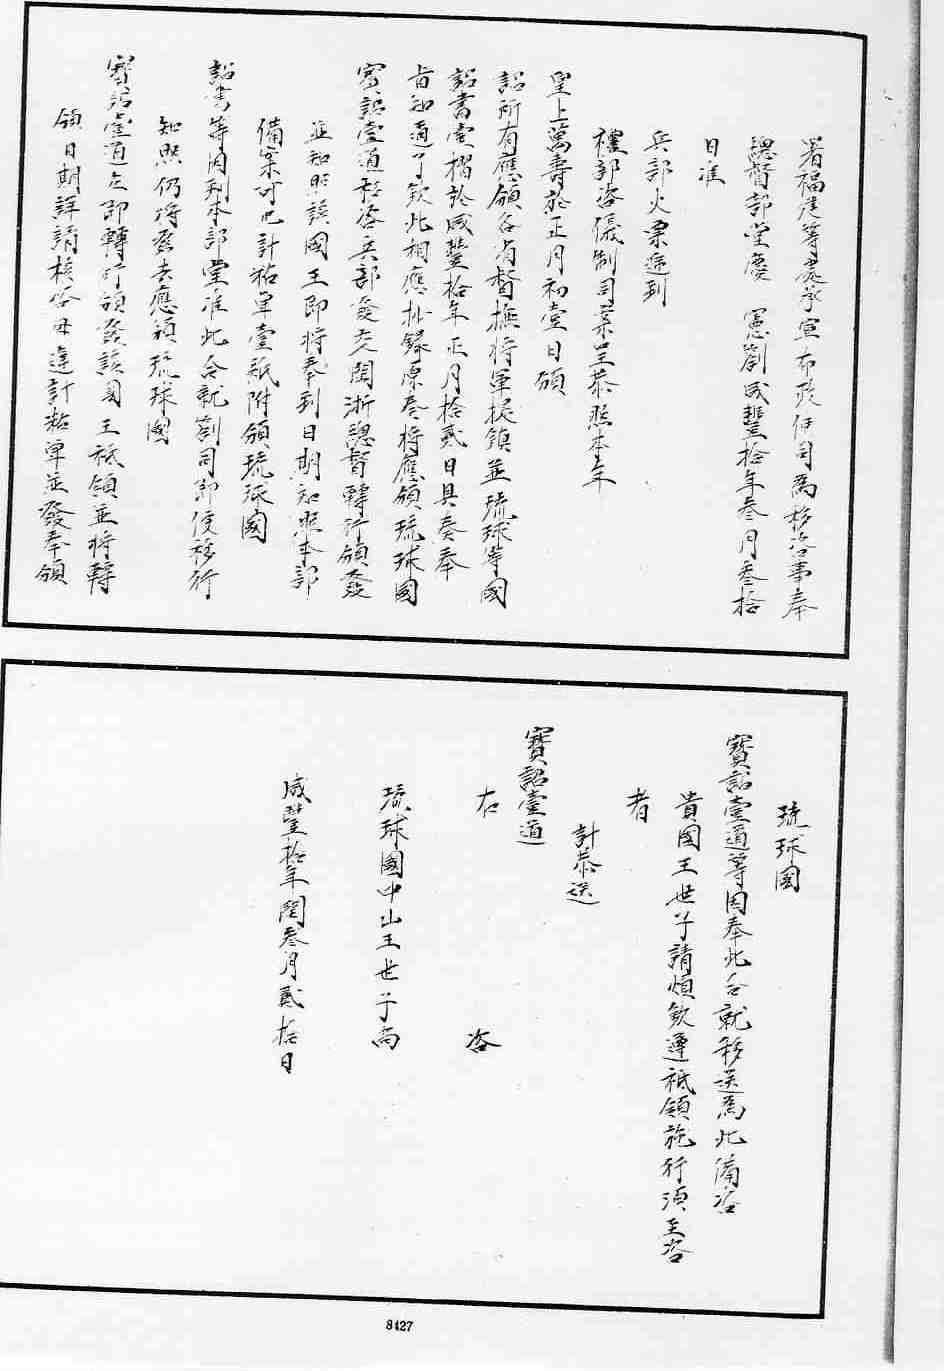 署福建等處承宣布政使司為移咨事奉
總督部堂慶　憲劄咸豐拾年叁月叁拾
日准
兵部火票遞到
禮部咨儀制司案呈恭照本年
皇上萬壽於正月初壹日頒
詔所有應領各省督撫將軍提鎮並琉球等國
詔書壹摺於咸豐拾年正月拾貳日具奏奉
旨知道了欽此相應抄錄原奏將應領琉球國
寶詔壹道移咨兵部發交閩浙總督轉行頒發
並知照該國王即將奉到日期知照本部
備案可也計粘單壹紙附頒琉球國
詔書等因到本部堂准此合就劄司即便移行
知照仍將發去應頒琉球國
寶詔壹道立即轉行頒發該國王祗領並將轉
頒日期詳請核咨毋違計粘單並發奉頒
琉球國
寶詔壹道等因奉此合就移送為此備咨
貴國王世子請煩欽遵祗領施行須至咨
者
計恭送
寶詔壹道
右　咨
琉球國中山王世子尚
咸豐拾年閏叁月貳拾日
8427